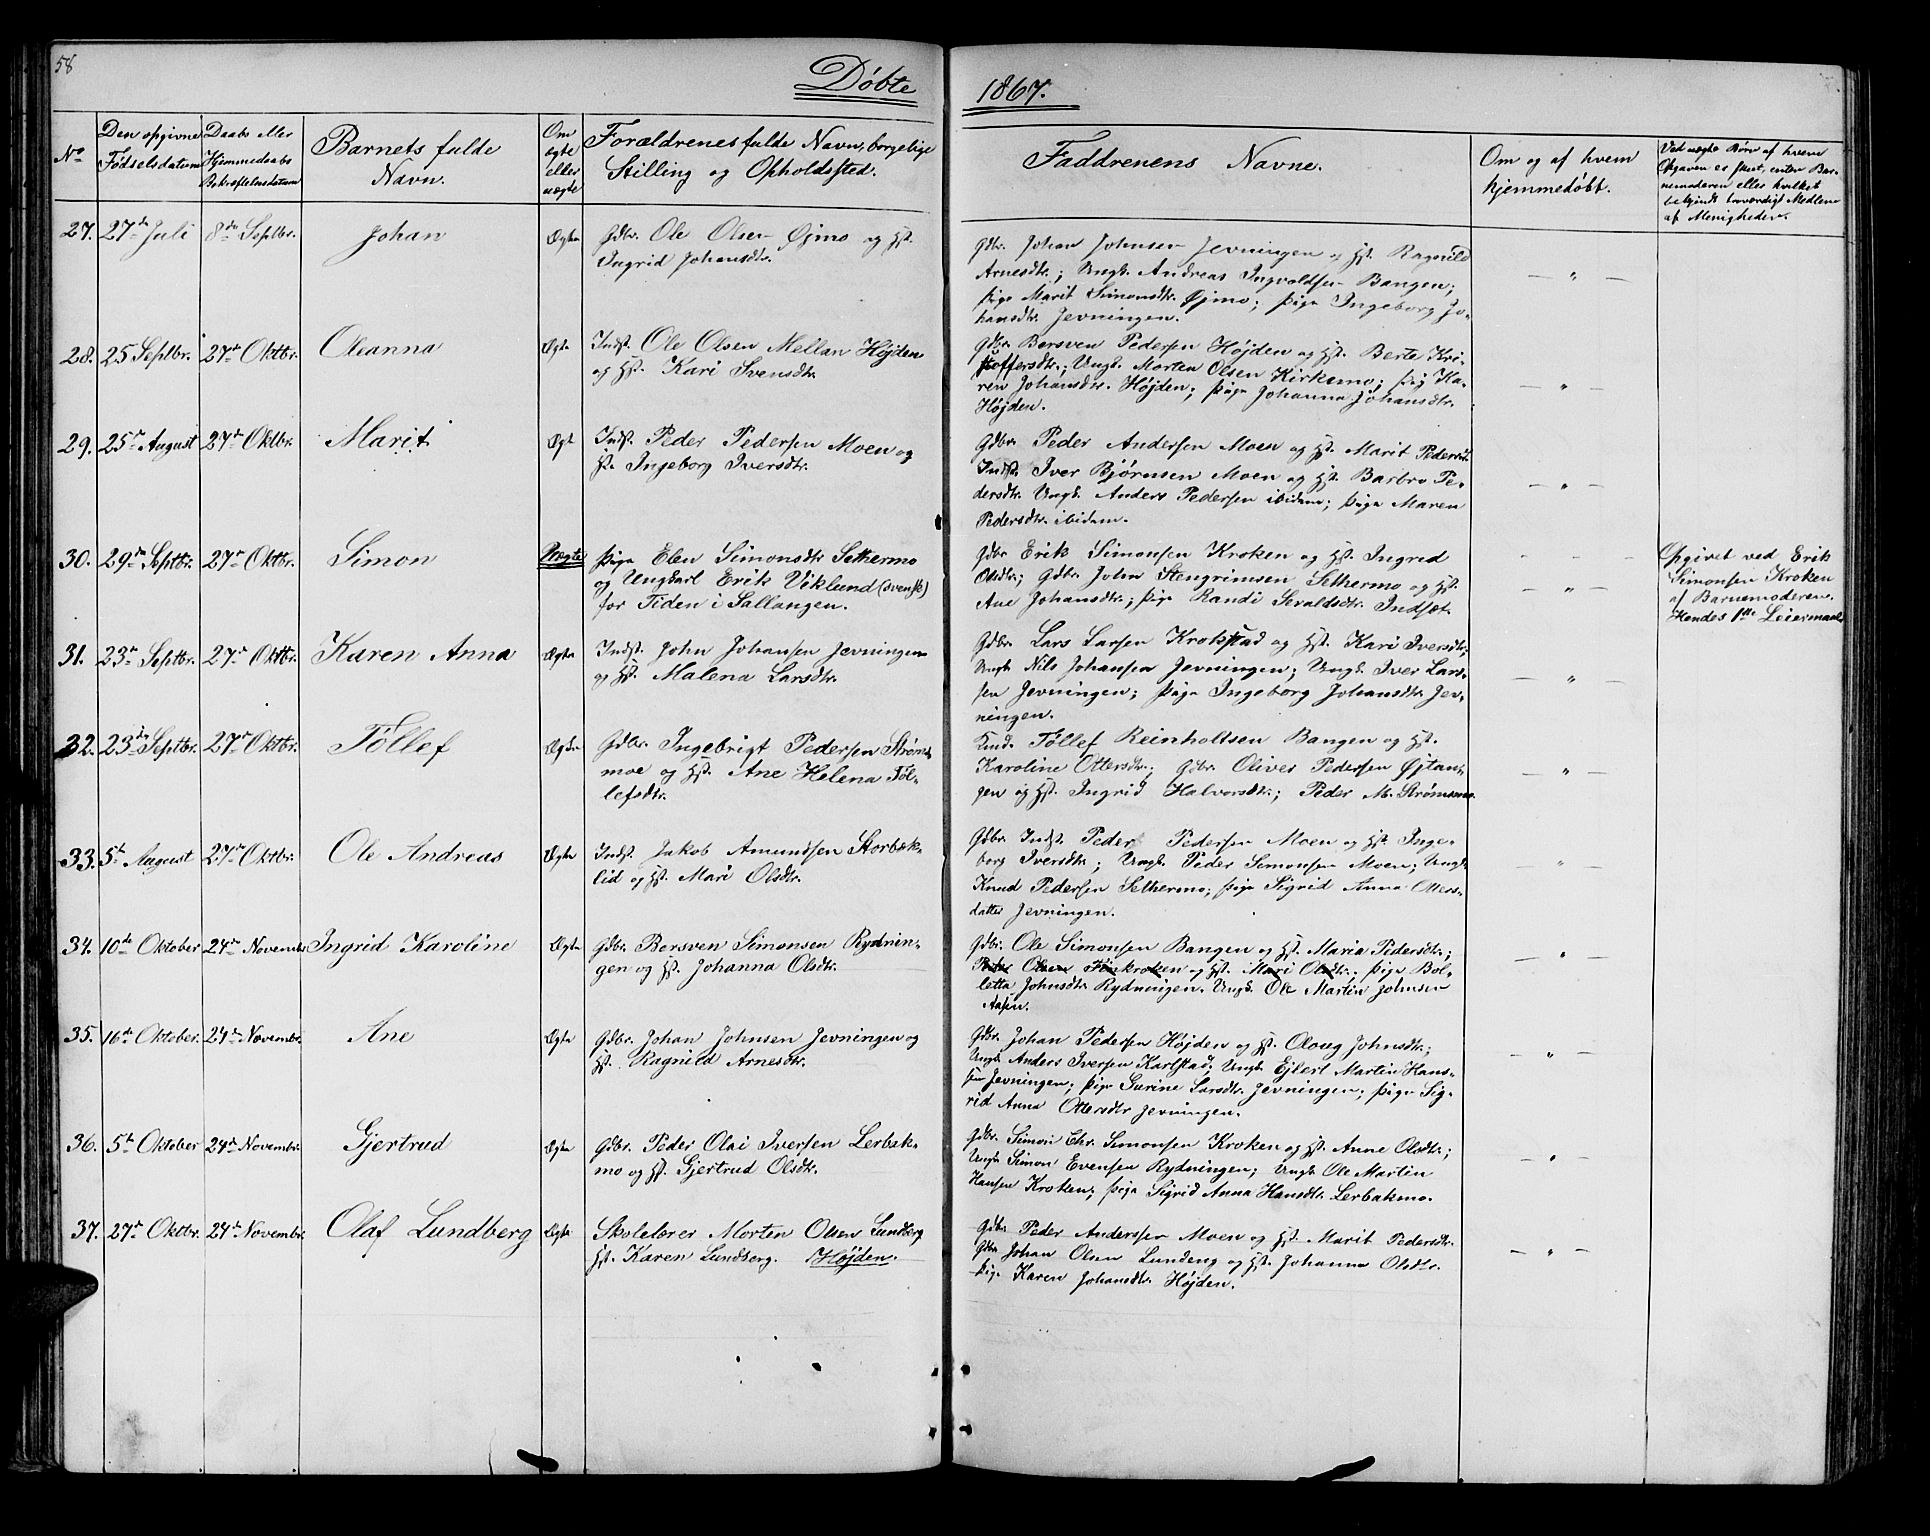 58
Døbte 1867.
No
Den opgivne Fødselsdatum
Daabs eller Hjemmedaabs Bekræftelsesdatum
Barnets fulde Navn.
Om ægte eller uægte
Forældrenes fulde Navn, borgelige Stilling og Opholdssted.
Faddrenens Navne.
Om og af hvem hjemmedøbt.
Ved uægte Børn af hvem Opgaven er skeet, enten Barnemoderen eller hvilket bekjendt troværdigt Medlem af Menigheden.
27. 27de Juli 8de Septbr. Johan Ægte Gdbr. Ole Olsen Øjmo og Hst.
Ingrid Johansdtr.
Gdbr. Johan Johnsen Jevningen og Hst. Ragnild
Arnesdtr.; Ungk. Andreas Ingvoldsen Bangen;
Pige Marit Simonsdtr. Øjmo; Pige Ingeborg Jo-
hansdtr. Jevningen.
28. 25 Septbr. 27de Oktbr. Oleanna Ægte Indst. Ole Olsen Mellan Højden
og Hst. Kari Svensdtr.
Gdbr. Borsven Pedersen Højden og Hst. Berte Kri-
stoffersdtr.; Ungk. Morten Olsen Kirkemo; Pig Ka-
ren Johansdtr. Højden; Pige Johanna Johansdtr.
Højden.
29. 25de August 27de Oktbr. Marit Ægt Indst. Peder Pedersen Moen og
Hst. Ingeborg Iversdtr.
Gdbr. Peder Andersen Moen og Hst. Marit Pedersdtr.
Indst. Iver Bjørnsen Moen og Hst. Barbro Pe-
dersdtr. Ungk. Anders Pedersen ibidem; Pige Maren
Pedersdtr. ibidem.
30. 29de Septbr. 27de Oktbr. Simon Uægte Pige Elen Simonsdtr Sethermo
og Ungkarl Erik Viklund (svensk)
for Tiden i Sallangen.
Gdbr Erik Simonsen Kroken og Hst. Ingrid
Olsdtr; Gdbr. John Stengrimsen Sethermo og Hst.
Ane Johansdtr.; Pige Randi Sevaldsdtr. Indset.
Opgivet ved Erik
Simonsen Kroken
af Barnemoderen.
Hendes 1ste Leiermaal
31. 23de Septbr. 27de Oktbr. Karen Anna Ægte Indst. John Johansen Jevningen
og Hst. Malena Larsdtr.
Gdbr. Lars Larsen Krokstad og Hst. Kari Iversdtr;
Ungk Nils Johansen Jevningen; Ungk. Iver Lar-
sen Jevningen; Pige Ingeborg Johansdtr. Jev-
ningen.
32. 23de Septbr. 27de Oktbr. Tøllef Ægte Gdbr. Ingebrigt Pedersen Strøm-
moe og Hst. Ane Helena Tøl-
lefsdtr.
Tøllef Reinholtsen Bangen og Hst.
Karoline Ottersdtr.; Gdbr. Oliver Pedersen Øjtan-
gen og Hst. Ingrid Halvorsdtr.; Peder M. Strømsmo.
33. 5te August 27de Oktbr. Ole Andreas Ægte Indst. Jakob Amundsen Storbæk-
lid og Hst. Mari Olsdtr.
Gdbr. Indst. Peder Pedersen Moen og Hst. Inge-
borg Iversdtr.; Ungk. Peder Simonsen Moen; Ungk.
Knud Pedersen Sethermo; Pige Sigrid Anna Otters-
datter Jevningen.
34. 10de Oktober 24de November Ingrid Karoline Ægte Gdbr. Borsven Simonsen Rydnin-
gen og Hst. Johanna Olsdtr.
Gdbr. Ole Simonsen Bangen og Hst. Maria Pedersdtr.;
Peder Olsen Finkroken og Hst. Mari Olsdtr.; Pige Bol-
letta Johnsdtr. Rydningen. Ungk. Ole Martin Johnsen
Aasen.
35. 16de Oktober. 24de Novembr. Ane Ægte Gdbr. Johan Johnsen Jevningen og
Hst. Ragnild Arnesdtr.
Gdbr. Johan Pedersen Højden og Hst. Oloug Johnsdtr.;
Ungk Anders Iversen Karlstad; Ungk. Ejlert Martin Hans-
sen Jevningen; Pige Surine Larsdtr. Jevningen; Pige Sig-
rid Anna Ottersdtr Jevningen.
36. 5te Oktober 24de Novembr. Gjertrud Ægte Gdbr. Peder Olai Iversen Lerbak-
mo og Hst. Gjertrud Olsdtr.
Gdbr. Simon Chr. Simonsen Kroken og Hst. Anne Olsdtr.;
Ungk Simon Evensen Rydningen; Ungk Ole Martin
Hansen Kroken; Pige Sigrid Anna Hansdtr. Lerbakmo.
37. 27de Oktbr. 24de Novembr. Olaf Lundberg Ægte Skolelærer Morten Olsen Lundberg
Hst. Karen Lundberg. Højden.
Gdbr. Peder Anderssen Moen og Hst. Marit Pedersdtr.
Gdbr Johan Olsen Lundeng og Hst. Johanna Olsdtr.
Pig. Karen Johansdtr. Højden.